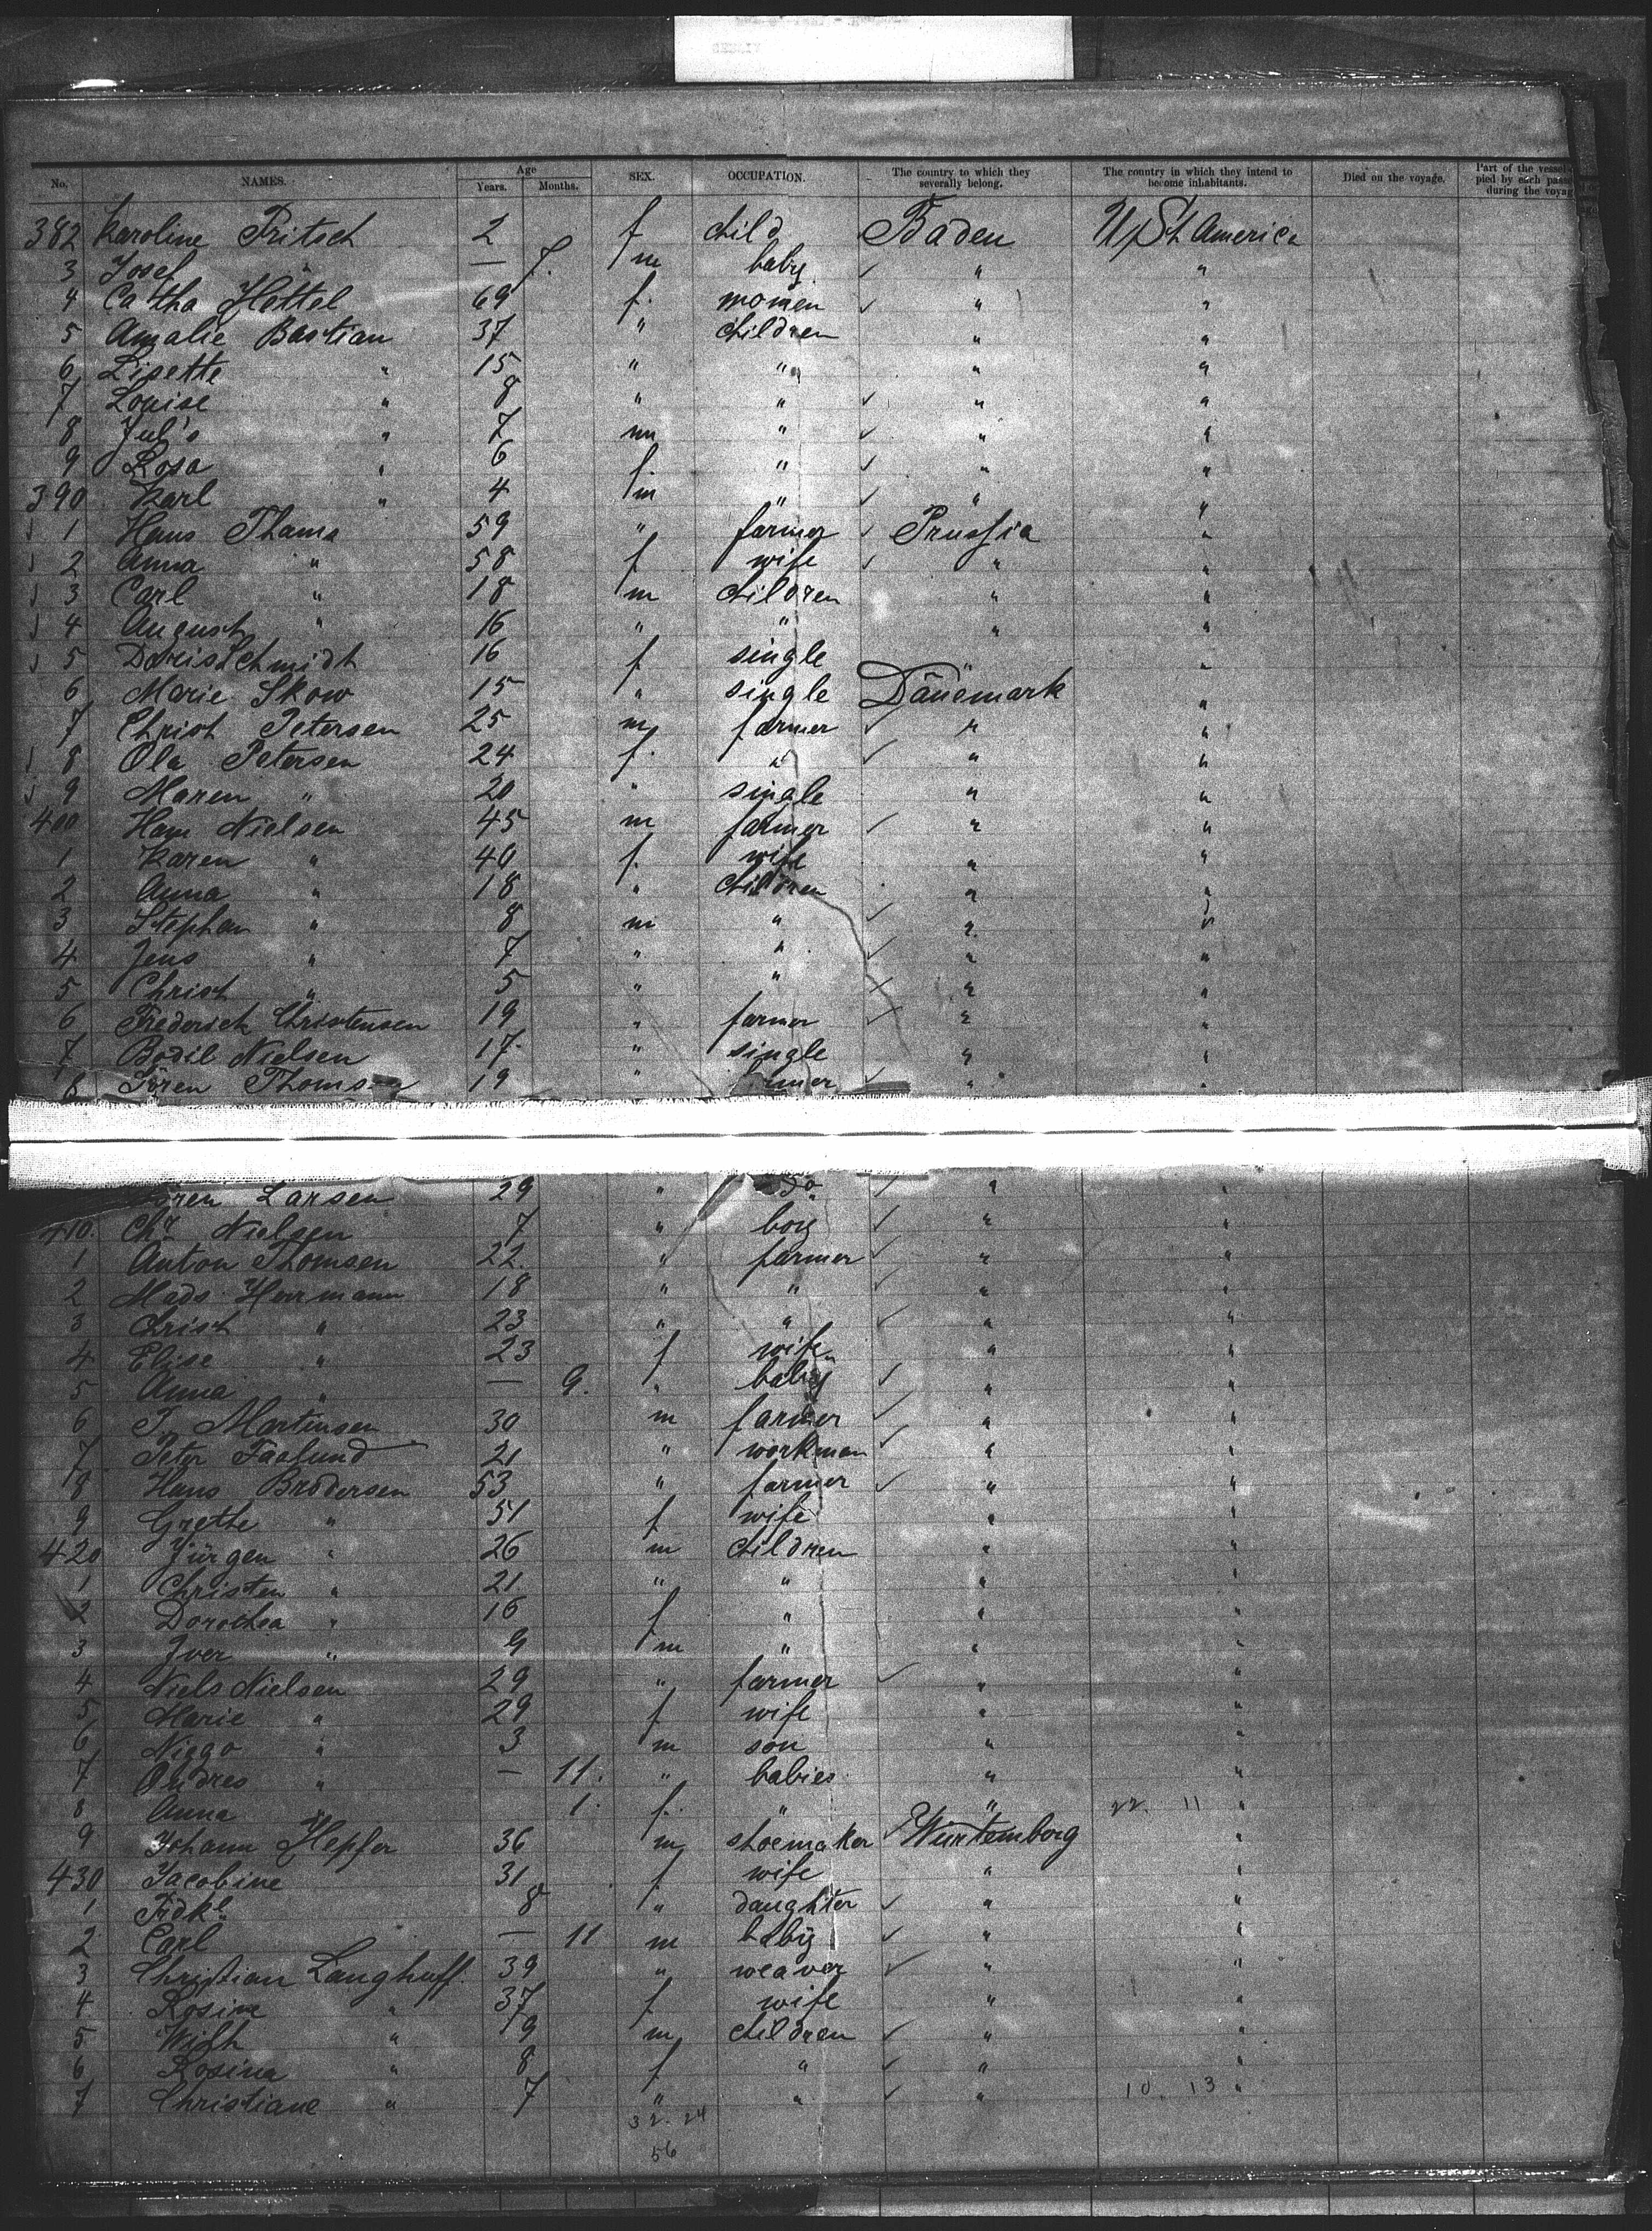 No. NAMES. Age Years. Months. SEX. OCCUPATION. The country to which they severally belong. The country in which they intend to become inhabitants. Died on the voyage. Part of the vessel pied by each pass during the voyag
382 Karoline Fritsch 2 f child Baden U St America
3 Josef " — 7. m baby ✓ " "
4 Catha Hettel 69 f. women ✓ " "
5 Amalie Bastian 37 " children " "
6 Lisette " 15 " " " "
7 Louise " 8 " " ✓ " "
8 Jul's " 7 m " ✓ " "
9 Rosa " 6 f. " ✓ " "
390 Karl " 4 m " ✓ " "
1 Hans Thams 59 " farmer ✓ Prussia "
2 Anna " 58 f wife ✓ " "
3 Carl " 18 m children " "
4 August " 16 " " " "
5 Doris Schmidt 16 f single " "
6 Marie Skow 15 " single Dänemark "
7 Christ Petersen 25 m farmer ✓ " "
8 Ole Petersen 24 f. " ✓ " "
9 Maren " 20 " single " "
400 Hans Nielsen 45 m farmer ✓ " "
1 Karen " 40 f. wife " "
2 Anna " 18 " children " "
3 Stephan " 8 m " ✓ " "
4 Jens " 7 " " ✓ " "
5 Christ " 5 " " ✓ " "
6 Frederick Christensen 19 " farmer ✓ " "
7 Bodil Nielsen 17 " single " "
8 Sören Thomsen 19 " farmer ✓ " "
Sören Larsen 29 " do ✓ " "
410. Chr Nielsen 7 " boy ✓ " "
1 Anton Thomsen 22. " farmer ✓ " "
2 Mads Herrmann 18 " " ✓ " "
3 Christ " 23 " " ✓ " "
4 Elise " 23 f wife " "
5 Anna " — 9. " baby ✓ " "
6 Martensen 30 m farmer ✓ " "
7 Peter Faslund 21 " workman ✓ " "
8 Hans Brodersen 53 " farmer ✓ " "
9 Grethe " 51 f wife " "
420 Jürgen " 26 m children " "
1 Christen " 21. " " " "
2 Dorothea " 16 f " " "
3 Iver " 9 m " " "
4 Niels Nielsen 29 " farmer ✓ " "
5 Marie " 29 f wife " "
6 Niggo " 3 m son " "
7 Andres " — 11. " babies " "
8 Anna " 1. f. " " 22. 11 "
9 Johann Hepfer 36 m shoemaker ✓ Würtemberg "
430 Jacobine 31 f wife " "
1 Frdke 8 " daughter ✓ " "
2 Carl — 11 m baby ✓ " "
3 Christian Langhuff. 39 " weaver ✓ " "
4 Rosine " 37 f wife " "
5 Wilh " 9 m children ✓ " "
6 Rosina " 8 f " ✓ " "
7 Christiane " 7 " " ✓ " 10. 13 "
32. 24
56